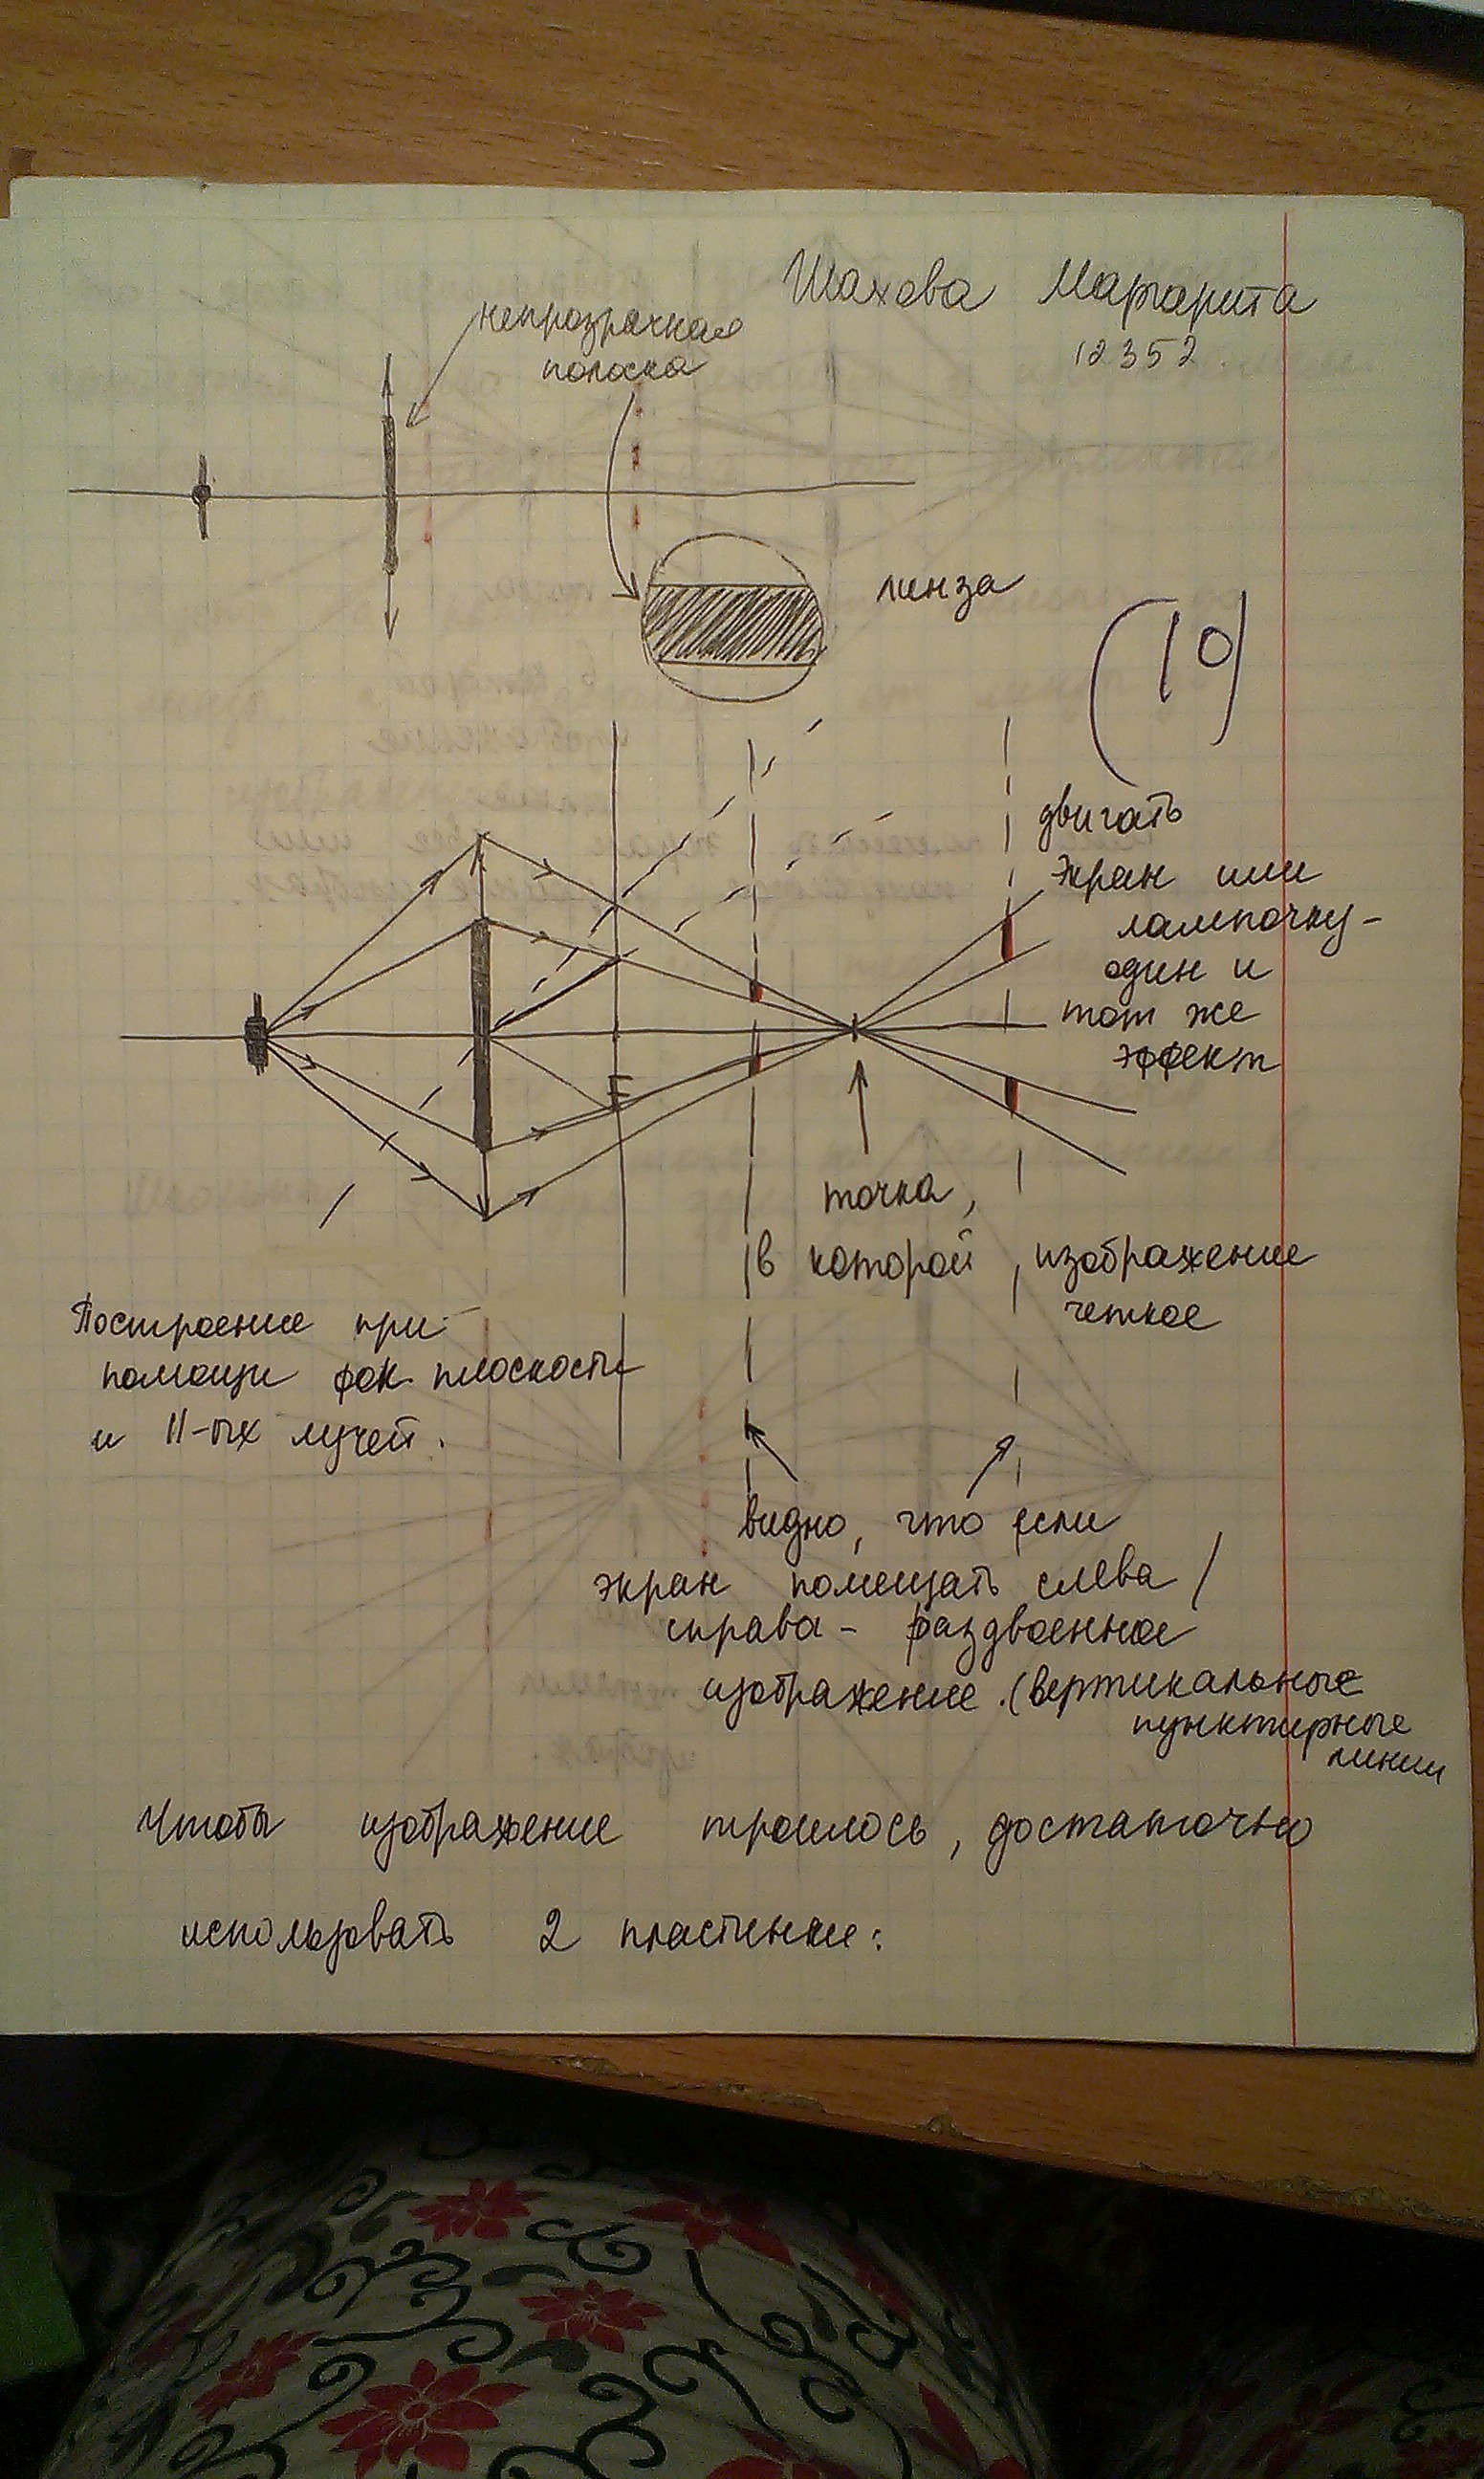 Шахова Маргарита
12352
непрозрачная
полоска
линза
(10)
двигать
экран или
лампочку -
один и
тот же
эффект
F
точка,
в которой изображение
четкое
Построение при
помощи фок. плоскости
и ||-ых лучей.
видно, что если
экран помещать слева /
справа - раздвоенное
изображение. (вертикальные
пунктирные
линии
Чтобы изображение троилось, достаточно
использовать 2 пластинки: